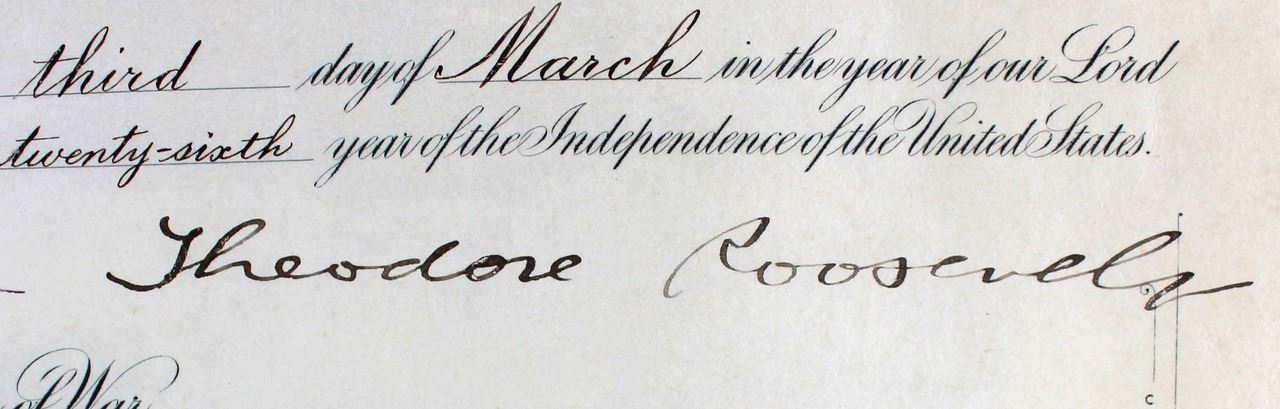 third day of March in the year of our Lord
twenty-sixth year of the Independence of the United States.
Theodore Roosevelt
of War
C